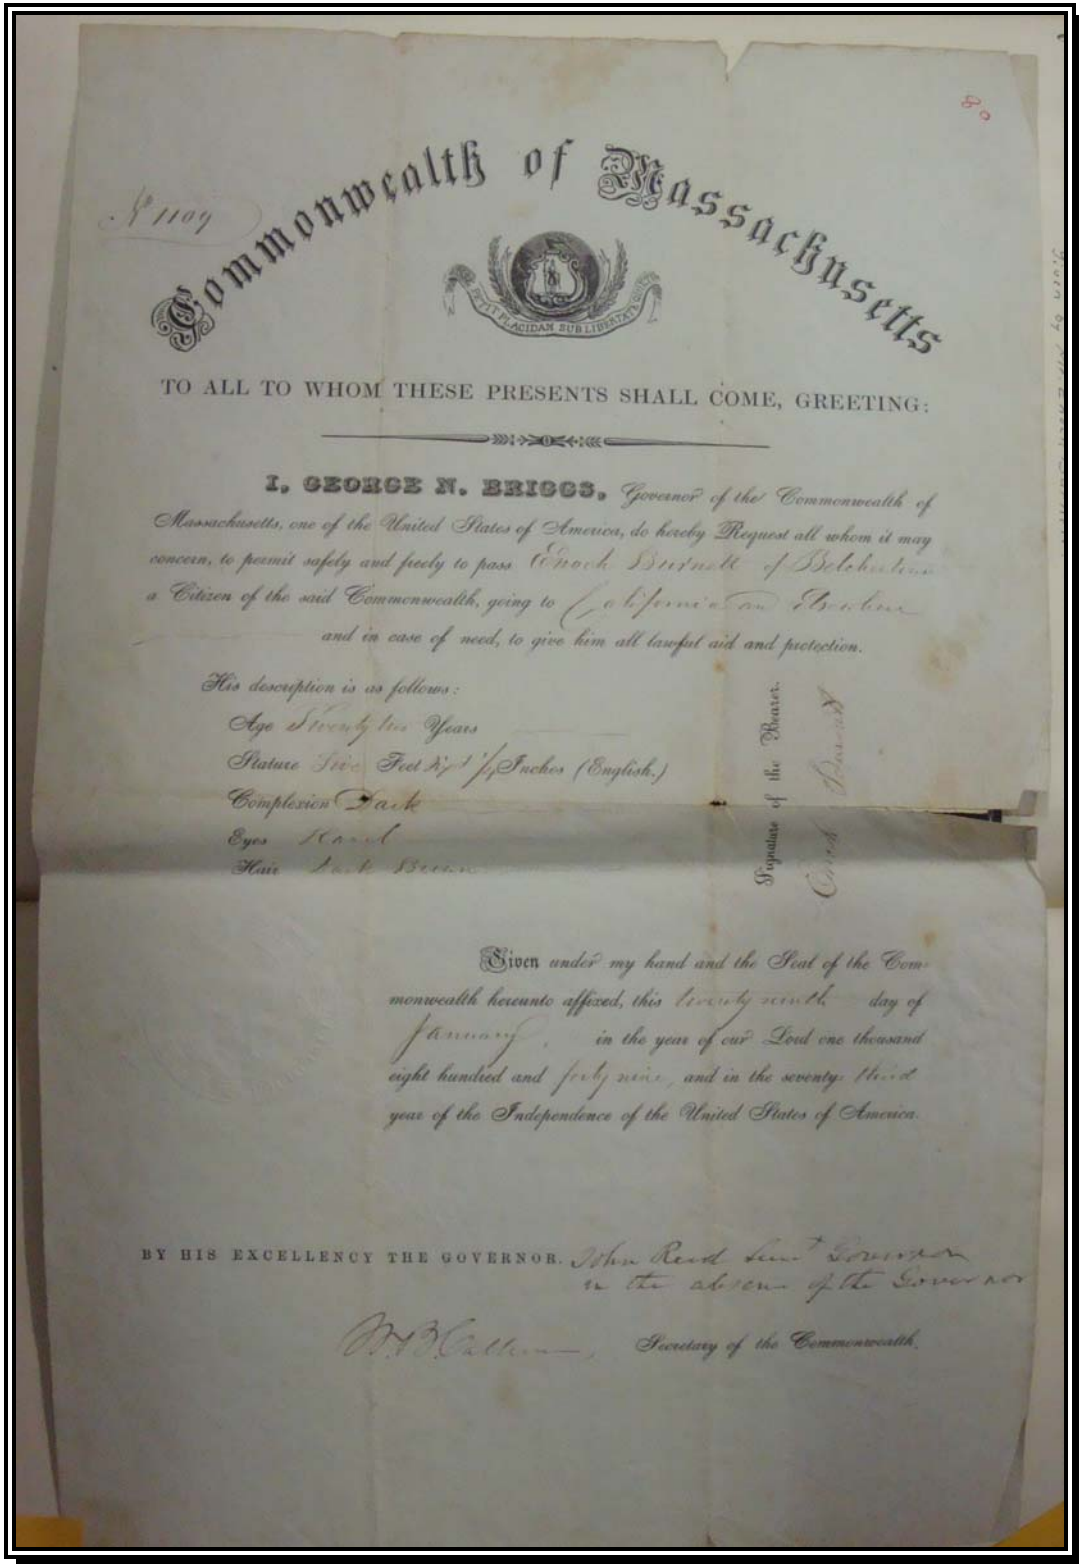 80
No 1109
Commonwealth of Massachusetts
ENSE PETIT PLACIDAM SUB LIBERTATE QUIETEM
TO ALL TO WHOM THESE PRESENTS SHALL COME, GREETING:
I, GEORGE N. BRIGGS, Governor of the Commonwealth of
Massachusetts, one of the United States of America, do hereby Request all whom it may
concern, to permit safely and freely to pass Enoch Burnett of Belchertown
a Citizen of the said Commonwealth, going to California and Elsewhere
and in case of need, to give him all lawful aid and protection.
His description is as follows:
Age Years
Stature Five Feet Inches (English.)
Complexion Dark
Eyes Hazel
Hair Dark Brown
Signature of the Bearer.
Enoch Burnett
Given under my hand and the Seal of the Com-
monwealth hereunto affixed, this twenty ninth day of
January, in the year of our Lord one thousand
eight hundred and forty nine, and in the seventy third
year of the Independence of the United States of America.
BY HIS EXCELLENCY THE GOVERNOR. John Reed Lieut Governor
in the absence of the Governor
W. B. Calhoun, Secretary of the Commonwealth.